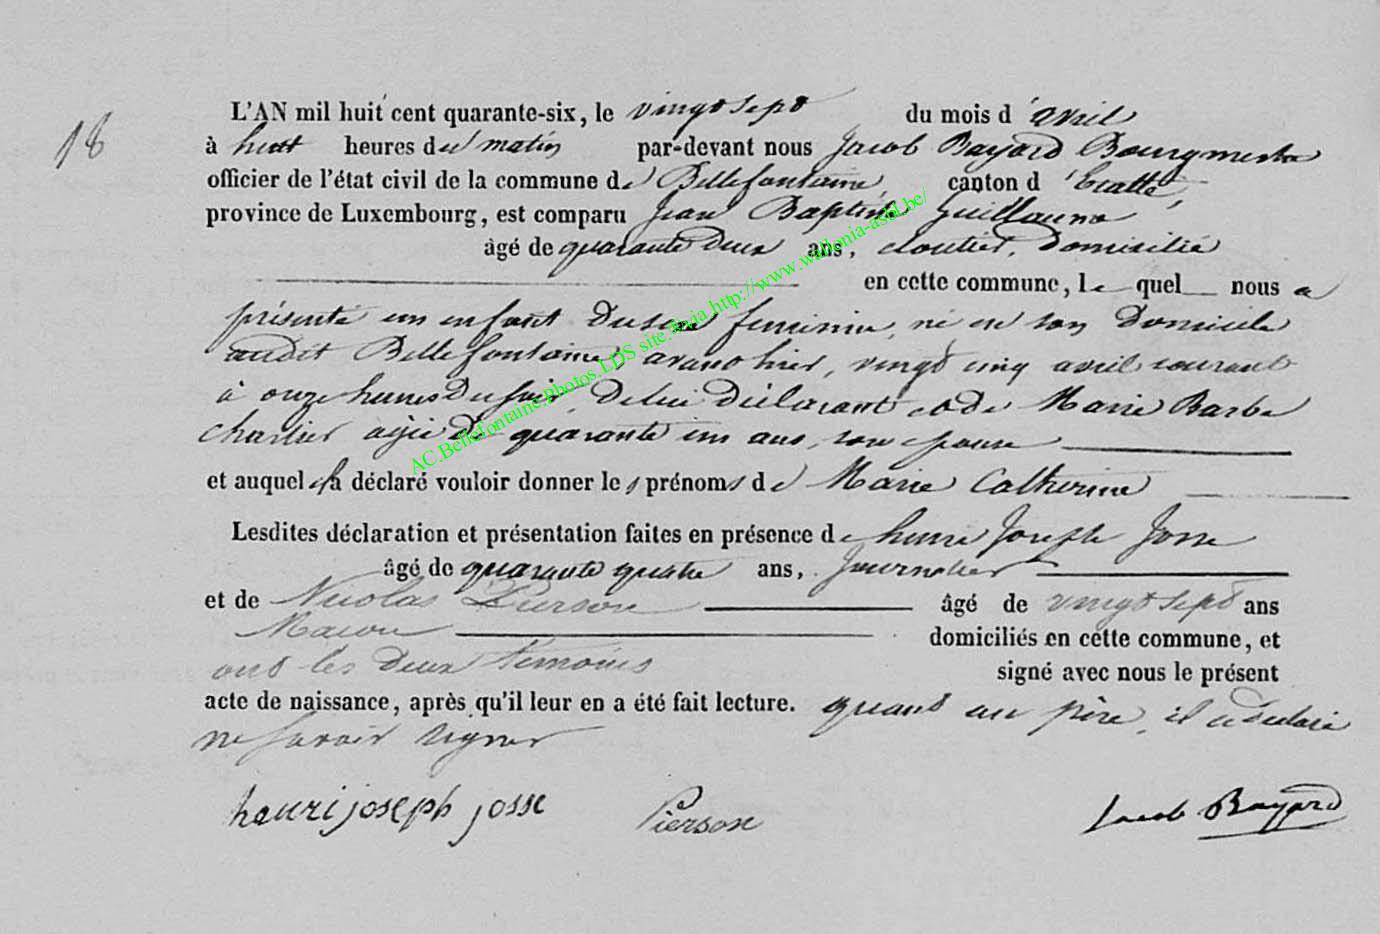 18
L'AN mil huit cent quarante-six, le vingt sept du mois d'avril
à huit heures du matin par-devant nous Jacob Bayard Bourgmestre
officier de l'état civil de la commune de Bellefontaine, canton d'Etalle,
province de Luxembourg, est comparu Jean Baptiste Guillaume
âgé de quarante deux ans, cloutier, domicilié
en cette commune, le quel nous a
présenté un enfant du sexe feminin, né en son domicile
audit Bellefontaine, avant hier, vingt cinq avril courant
à onze heures du soir, de lui déclarant et de Marie Barbe
Charlier agée de quarante un ans, son epouse
et auquel il a déclaré vouloir donner les prénoms de Marie Catherine
Lesdites déclaration et présentation faites en présence de henri Joseph Josse
âgé de quarante quatre ans, Journalier
et de Nicolas Pierson âgé de vingt sept ans
Macon domiciliés en cette commune, et
ont les deux temoins signé avec nous le présent
acte de naissance, après qu'il leur en a été fait lecture. quant au père, il a declaré
ne savoir signer
henri joseph josse Pierson Jacob Bayard
AC.Bellefontaine.photos.LDS site via http://www.wallonia-asbl.be/